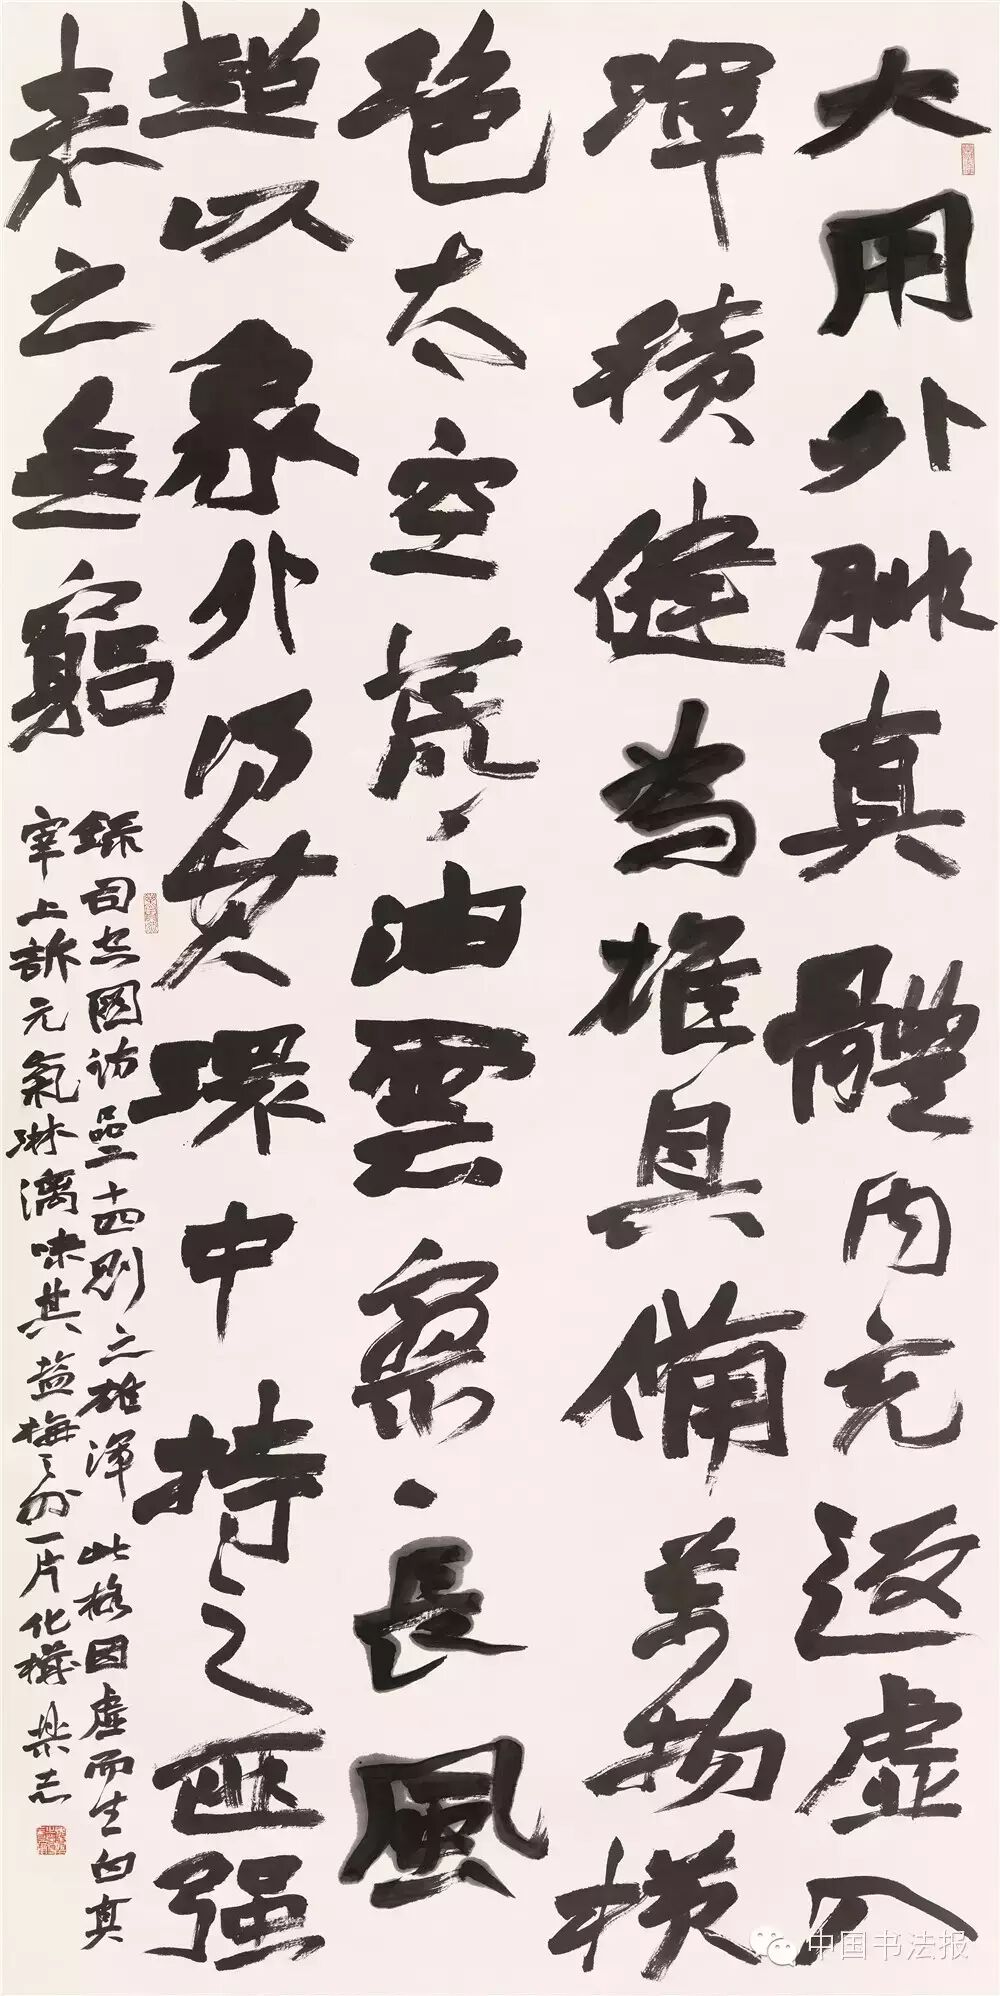 大用外腓真體内充返虚入
渾積健為雄具備萬物横
絶太空荒〻油雲寥〻長風
超以象外得其環中持之匪强
来之無窮
錄司空圖詩品二十四則之雄渾 此格因虚而生白真
宰上訴元氣淋漓味其盐梅之外一片化機
中国书法报